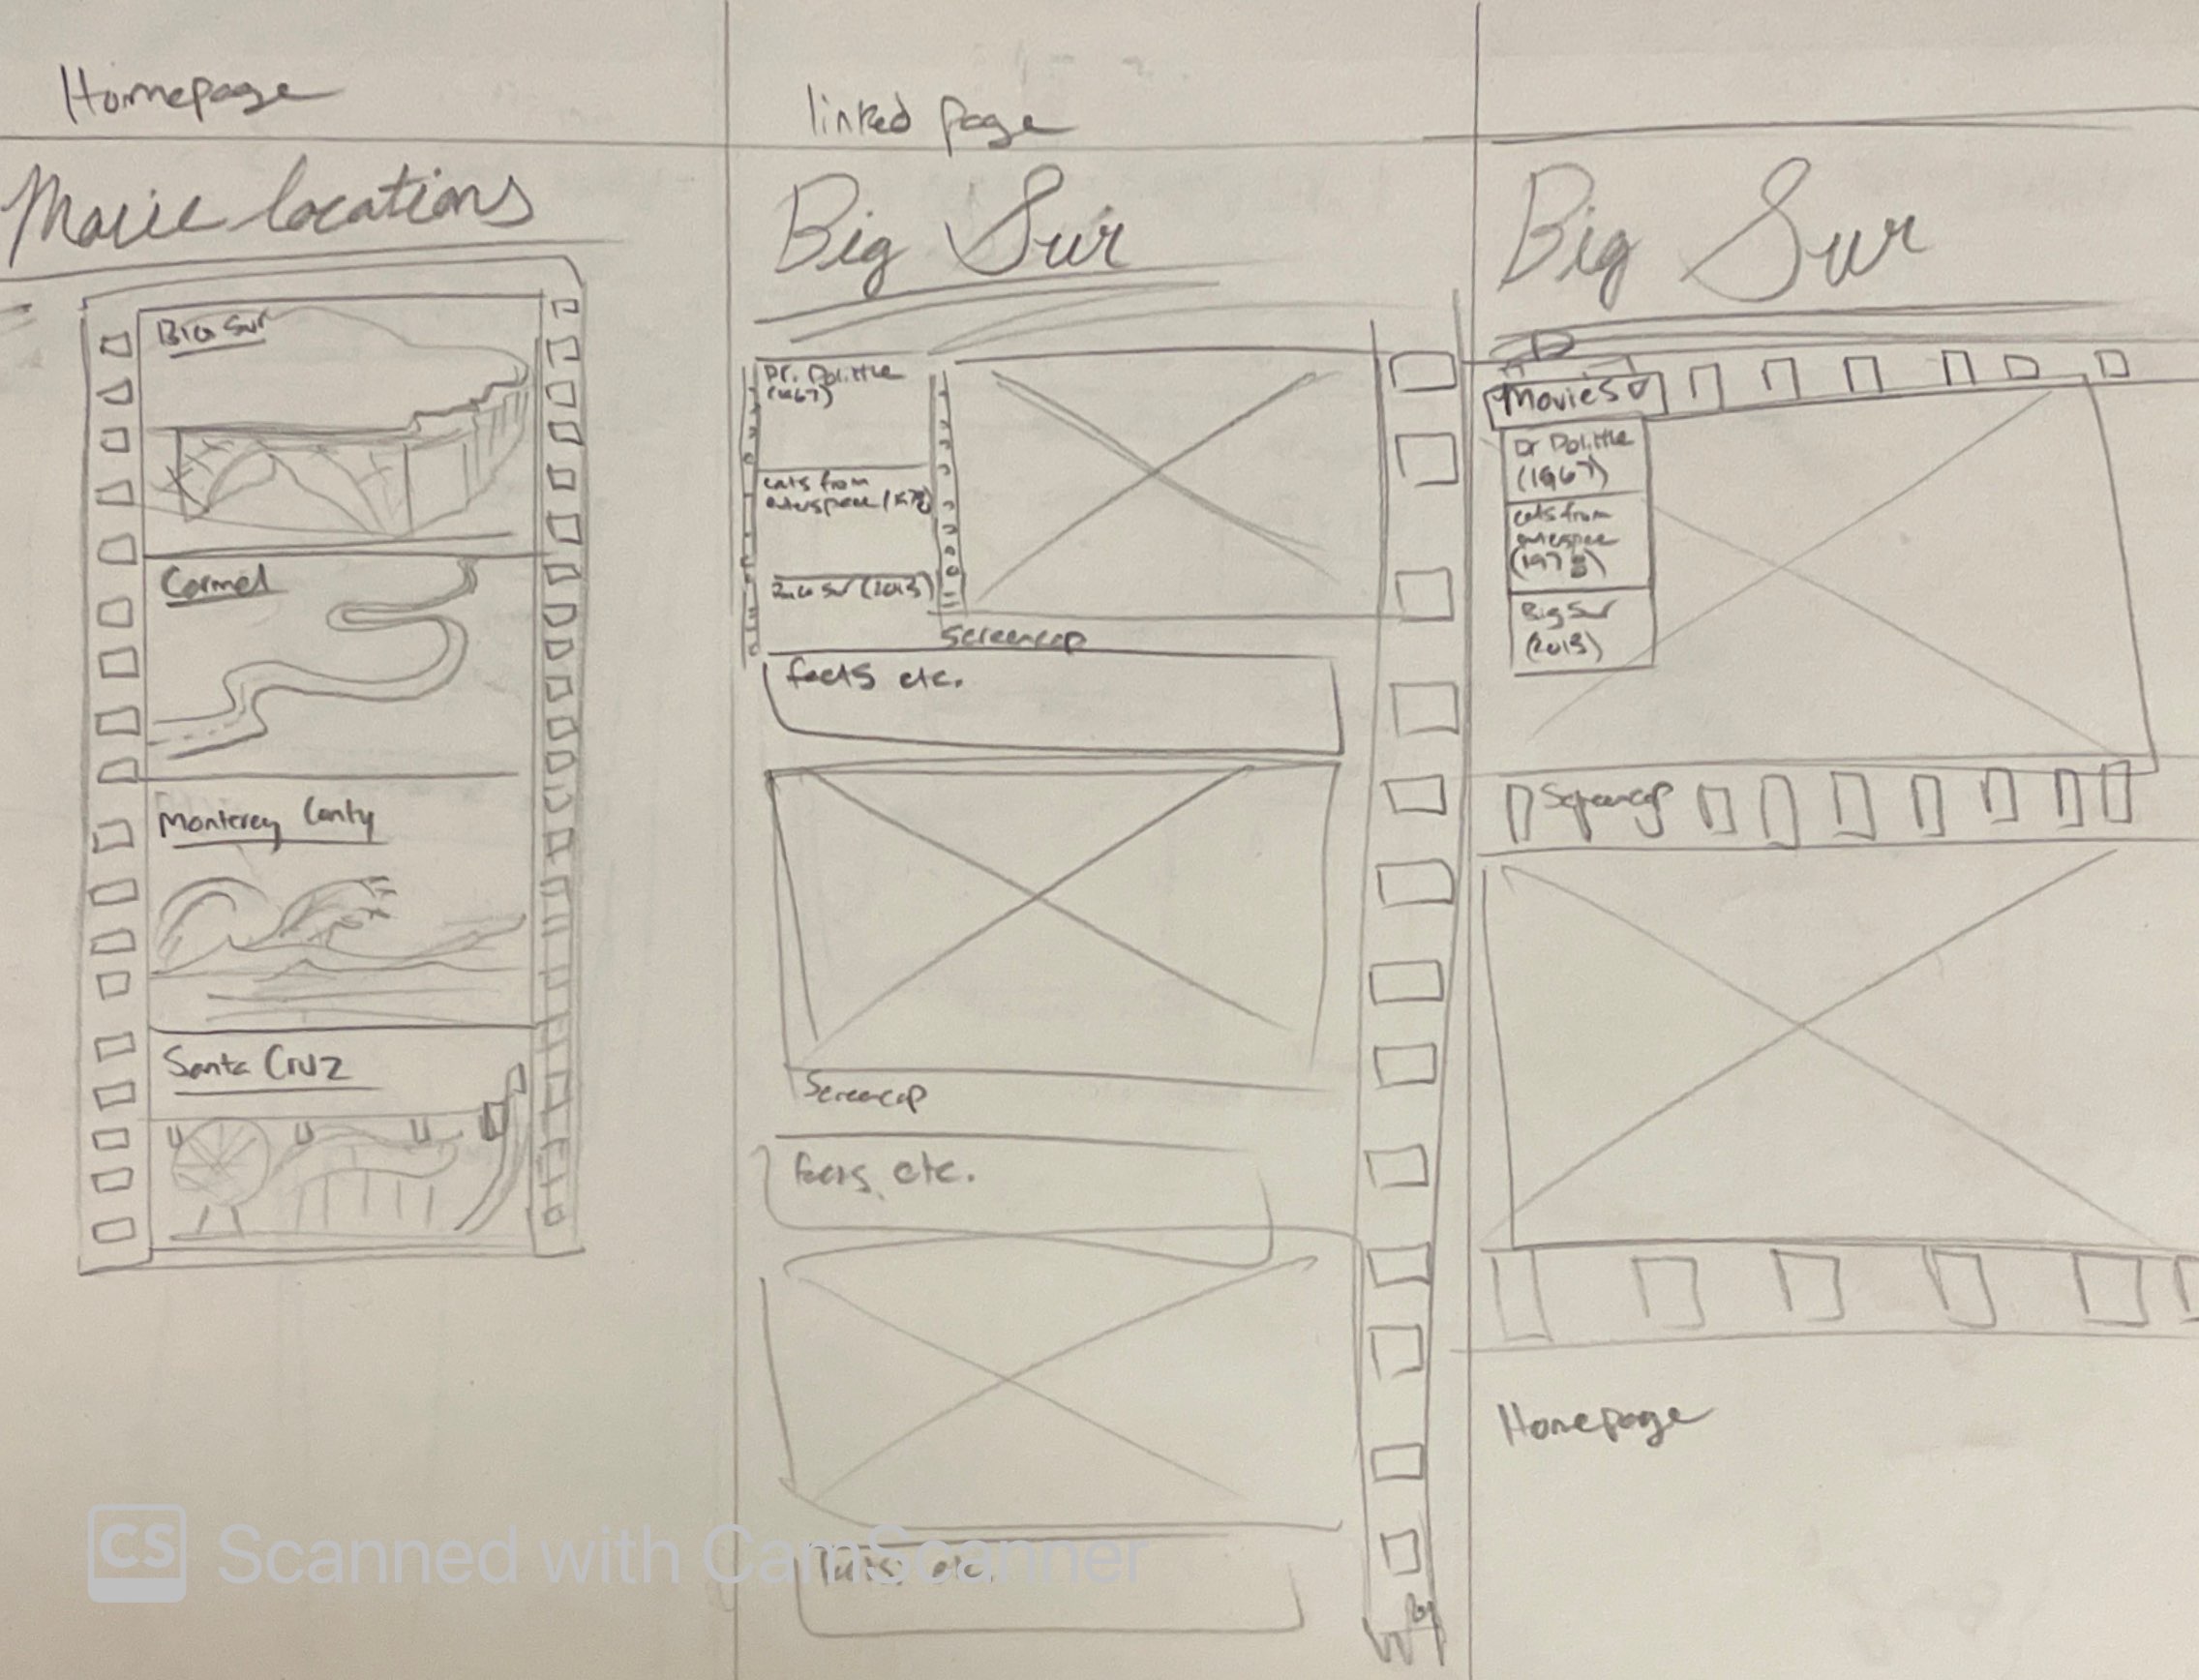 Homepage
Movie locations
Big Sur
Carmel
Monterey Conty
Santa Cruz
linked page
Big Sur
Dr. Dolittle
(1967)
cats from
outerspace (1978)
Big Sur (2013)
Screencap
facts etc.
Screencap
facts, etc.
facts, etc.
Big Sur
Movies
Dr Dolittle
(1967)
cats from
outerspace
(1978)
Big Sur
(2013)
Screencap
Homepage
CS Scanned with CamScanner